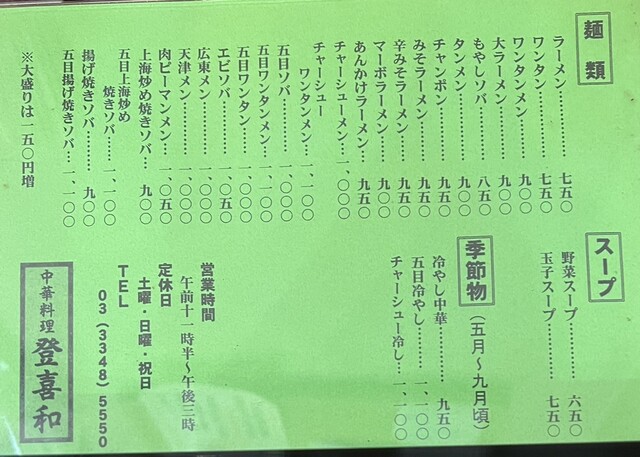 麺類
ラーメン…………七五〇
ワンタン…………七五〇
ワンタンメン……九〇〇
大ラーメン………九〇〇
もやしソバ………八五〇
タンメン…………九〇〇
チャンポン………九五〇
みそラーメン……九五〇
辛みそラーメン…九五〇
マーボラーメン…九五〇
あんかけラーメン…九五〇
チャーシューメン…一、〇〇〇
チャーシュー
ワンタンメン…一、一〇〇
五目ソバ…………一、〇〇〇
五目ワンタンメン…一、一〇〇
五目ワンタン……一、〇〇〇
エビソバ…………一、〇五〇
広東メン…………一、〇〇〇
天津メン…………一、〇〇〇
肉ピーマンメン…一、〇五〇
上海炒め焼きソバ…九〇〇
五目上海炒め
焼きソバ…一、一〇〇
揚げ焼きソバ………九〇〇
五目揚げ焼きソバ…一、一〇〇
※大盛りは一五〇円増
スープ
野菜スープ…………六五〇
玉子スープ…………七五〇
季節物(五月〜九月頃)
冷やし中華…………九五〇
五目冷やし………一、一〇〇
チャーシュー冷し…一、一〇〇
営業時間
午前十一時半〜午後三時
定休日
土曜・日曜・祝日
TEL
03(3348)5550
中華料理 登喜和